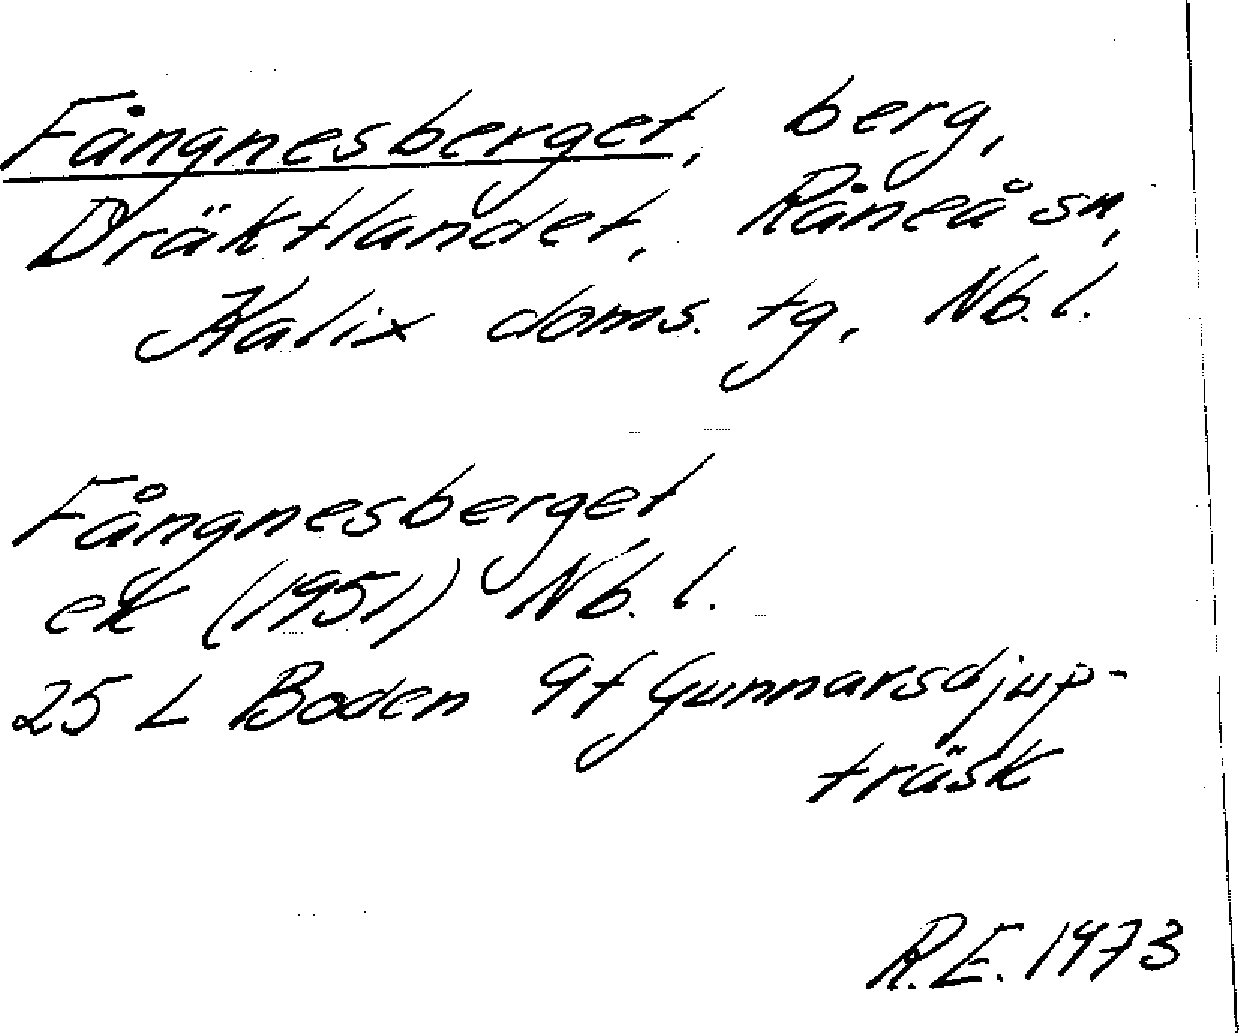 Fångnesberget, berg,
Dräktlandet, Råneå sn,
Kalix doms. tg, Nb. l.
Fångnesberget
ek (1951) Nb. l.
25 L Boden 9f Gunnarsdjup-
träsk
R.E. 1973